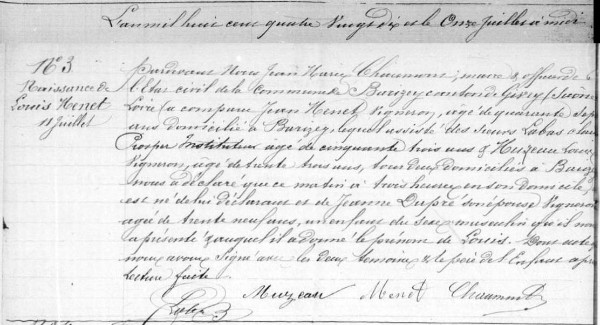 L'an mil huit cent quatre Vingt dix et le Onze Juillet à midi
N° 3
Naissance de
Louis Menet
11 Juillet
Pardevant Nous Jean Marie Chaumont, maire & officier de
l'état civil de la Commune de Barizey canton de Givry (Saône
Loire) a comparu Jean Menet Vigneron, âgé de quarante sept
ans domicilié à Barizey, lequel assisté des Sieurs
Prosper Instituteur âgé de cinquante trois ans & Muzeau Louis
Vigneron, âgé de trente trois ans, tous deux domiciliés à Barizey
nous a déclaré que ce matin à trois heures en son domicile
est né de lui déclarant et de Jeanne Dupré son épouse Vigneronne
agée de trente neuf ans, un enfant du sexe masculin qu'il nous
a présenté & auquel il a donné le prénom de Louis. Dont acte
nous avons signé avec les deux témoins & le père de l'Enfant après
Lecture faite
Muzeau Menet Chaumont